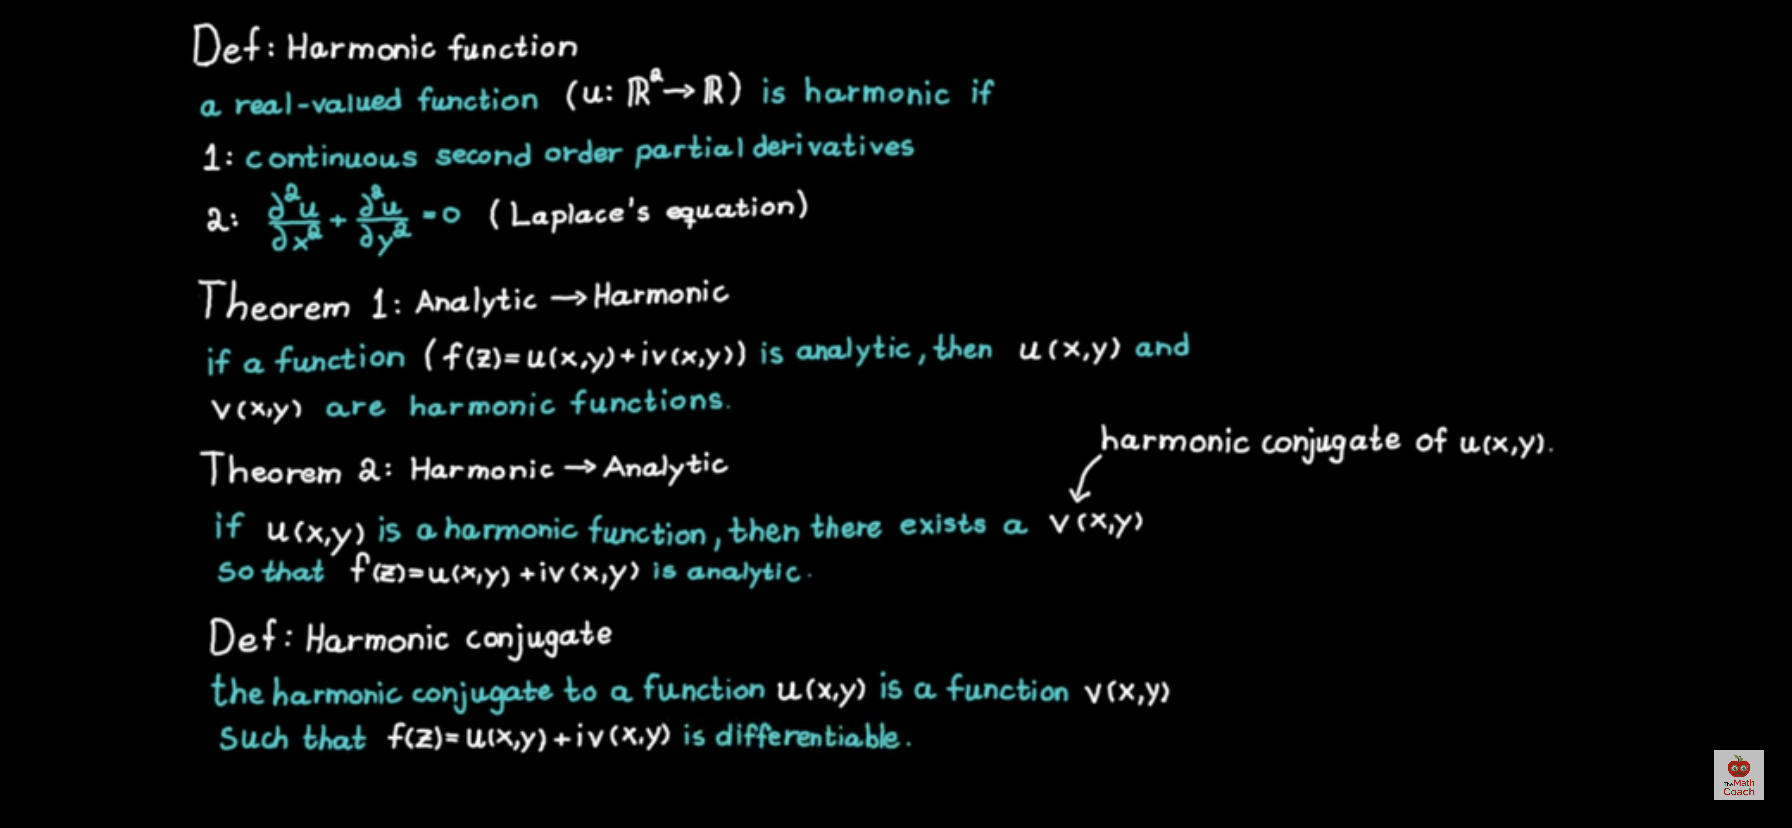 Def: Harmonic function
a real-valued function (u: ℝ² → ℝ) is harmonic if
1: continuous second order partial derivatives
2: ∂²u/∂x² + ∂²u/∂y² = 0 (Laplace's equation)
Theorem 1: Analytic → Harmonic
if a function (f(z)=u(x,y)+iv(x,y)) is analytic, then u(x,y) and
v(x,y) are harmonic functions.
harmonic conjugate of u(x,y).
Theorem 2: Harmonic → Analytic
if u(x,y) is a harmonic function, then there exists a v(x,y)
so that f(z)=u(x,y)+iv(x,y) is analytic.
Def: Harmonic conjugate
the harmonic conjugate to a function u(x,y) is a function v(x,y)
Such that f(z)=u(x,y)+iv(x,y) is differentiable.
The Math
Coach